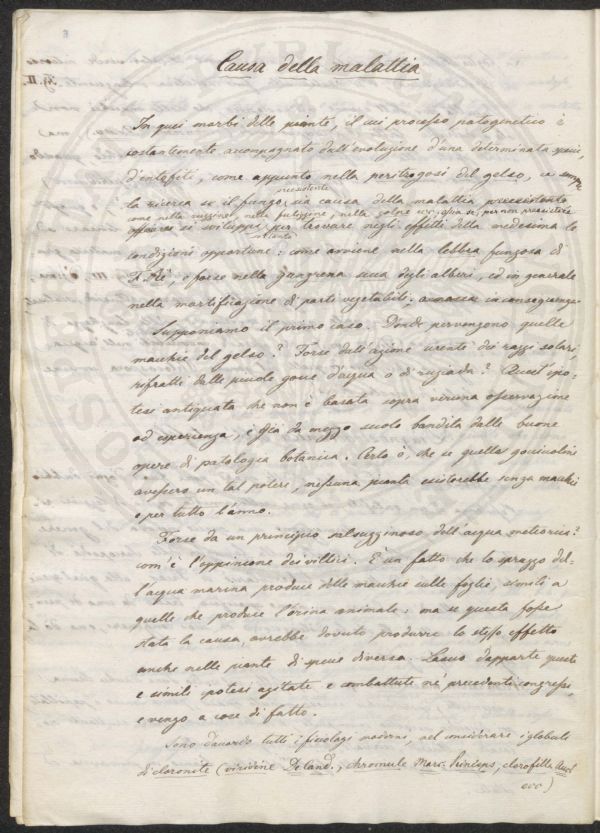 Causa della malattia
In quei morbi delle piante, il cui processo patogenetico è
costantemente accompagnato dall'evoluzione d'una determinata specie
d'entofiti, come appunto nella peritrogosi del gelso, è sempre
la ricerca se il fungo preesistente sia causa della malattia
come nella ruggine, nella fuliggine, nella golpe, per non preesistere
si sviluppi per trovare negli effetti della medesima le
condizioni opportune: come avviene nella lebbra fungosa di
F. Re, e forse nella Gangrena secca degli alberi, ed in generale
nella mortificazione di parti vegetabili.
Supponiamo il primo caso. Donde pervengono quelle
macchie del gelso? Forse dall'azione urente dei raggi solari
rifratti dalle piccole gocce d'acqua o di rugiada? Quest'ipo-
tesi antiquata che non è basata sopra veruna osservazione
od esperienza, è già da mezzo secolo bandita dalle buone
opere di patologia botanica. Certo è, che se quelle goccioline
avessero un tal potere, nessuna pianta esisterebbe senza macchie
e per tutto l'anno.
Forse da un principio salsugginoso dell'acqua meteorica?
com'è l'oppinione dei villici. È un fatto che lo sprazzo del-
l'acqua marina produce delle macchie sulle foglie, simili a
quelle che produce l'orina animale: ma se questa fosse
stata la causa, avrebbe dovuto produrre lo stesso effetto
anche nelle piante di specie diversa. Lascio dapparte queste
e simili ipotesi agitate e combattute nei precedenti congressi,
e vengo a cose di fatto.
Sono d'accordo tutti i fisiologi moderni, nel considerare i globuli
di cloronite (viridine DeCand., chromule Marc. Princeps, clorofilla Auct
ecc)
Fig. II.